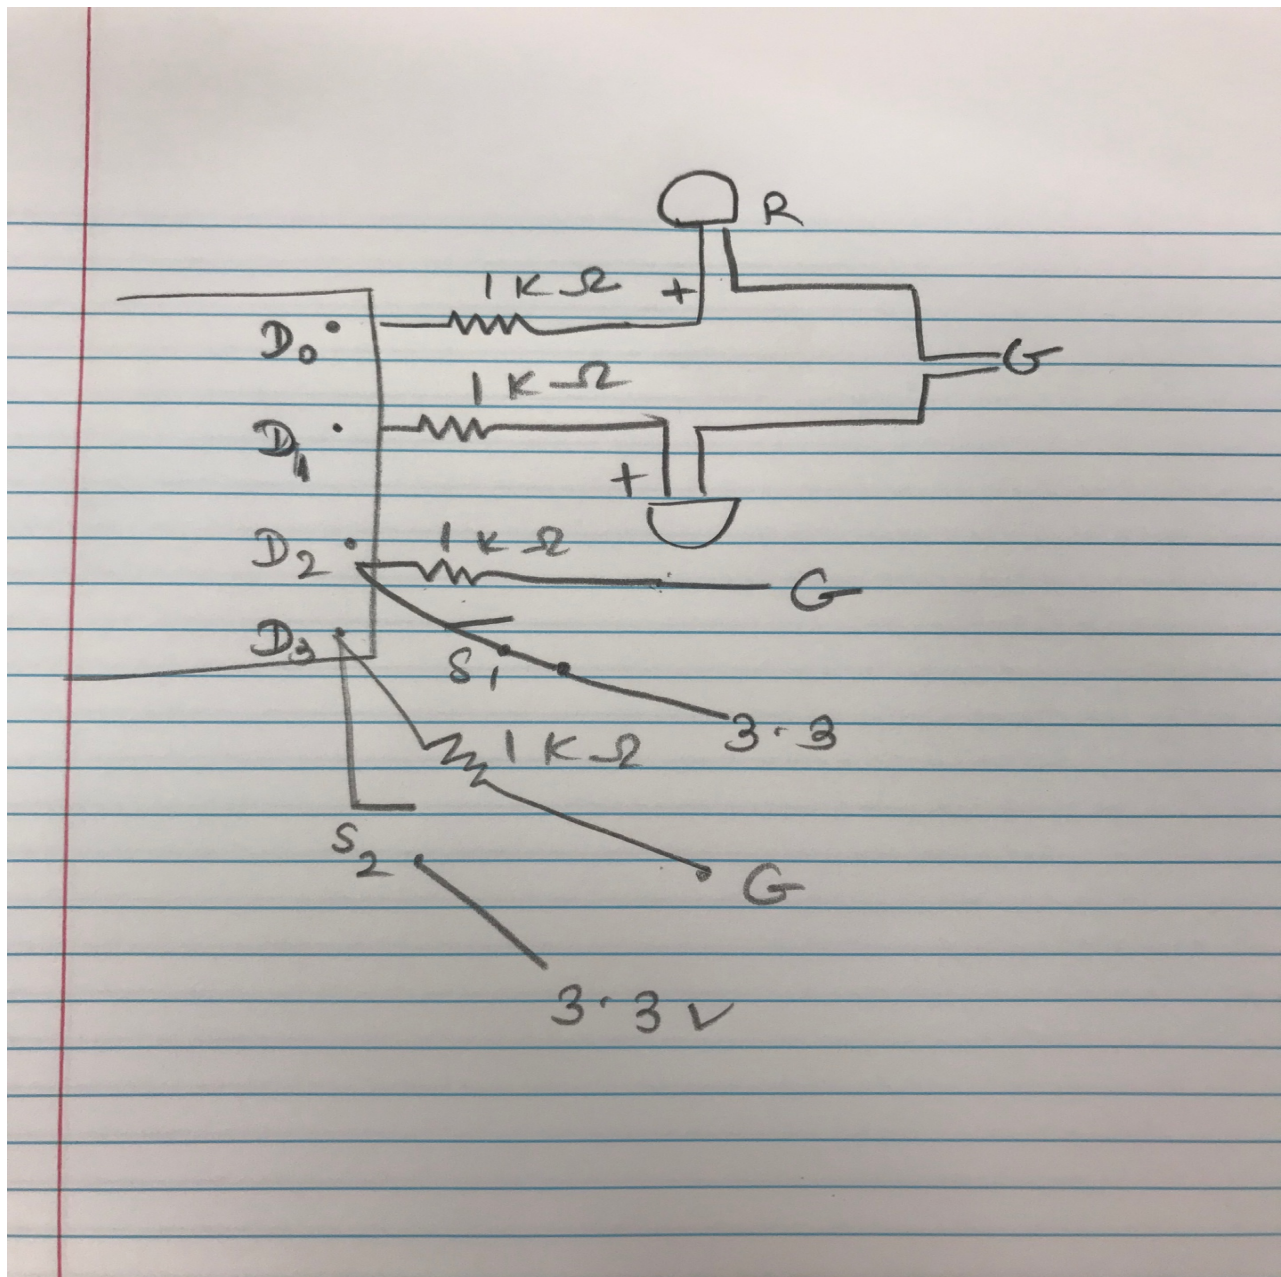 R
1 K Ω +
D0
G
1 K Ω
D1
+
D2 1 K Ω
G
D3
S1
3.3
1 K Ω
S2
G
3.3 V